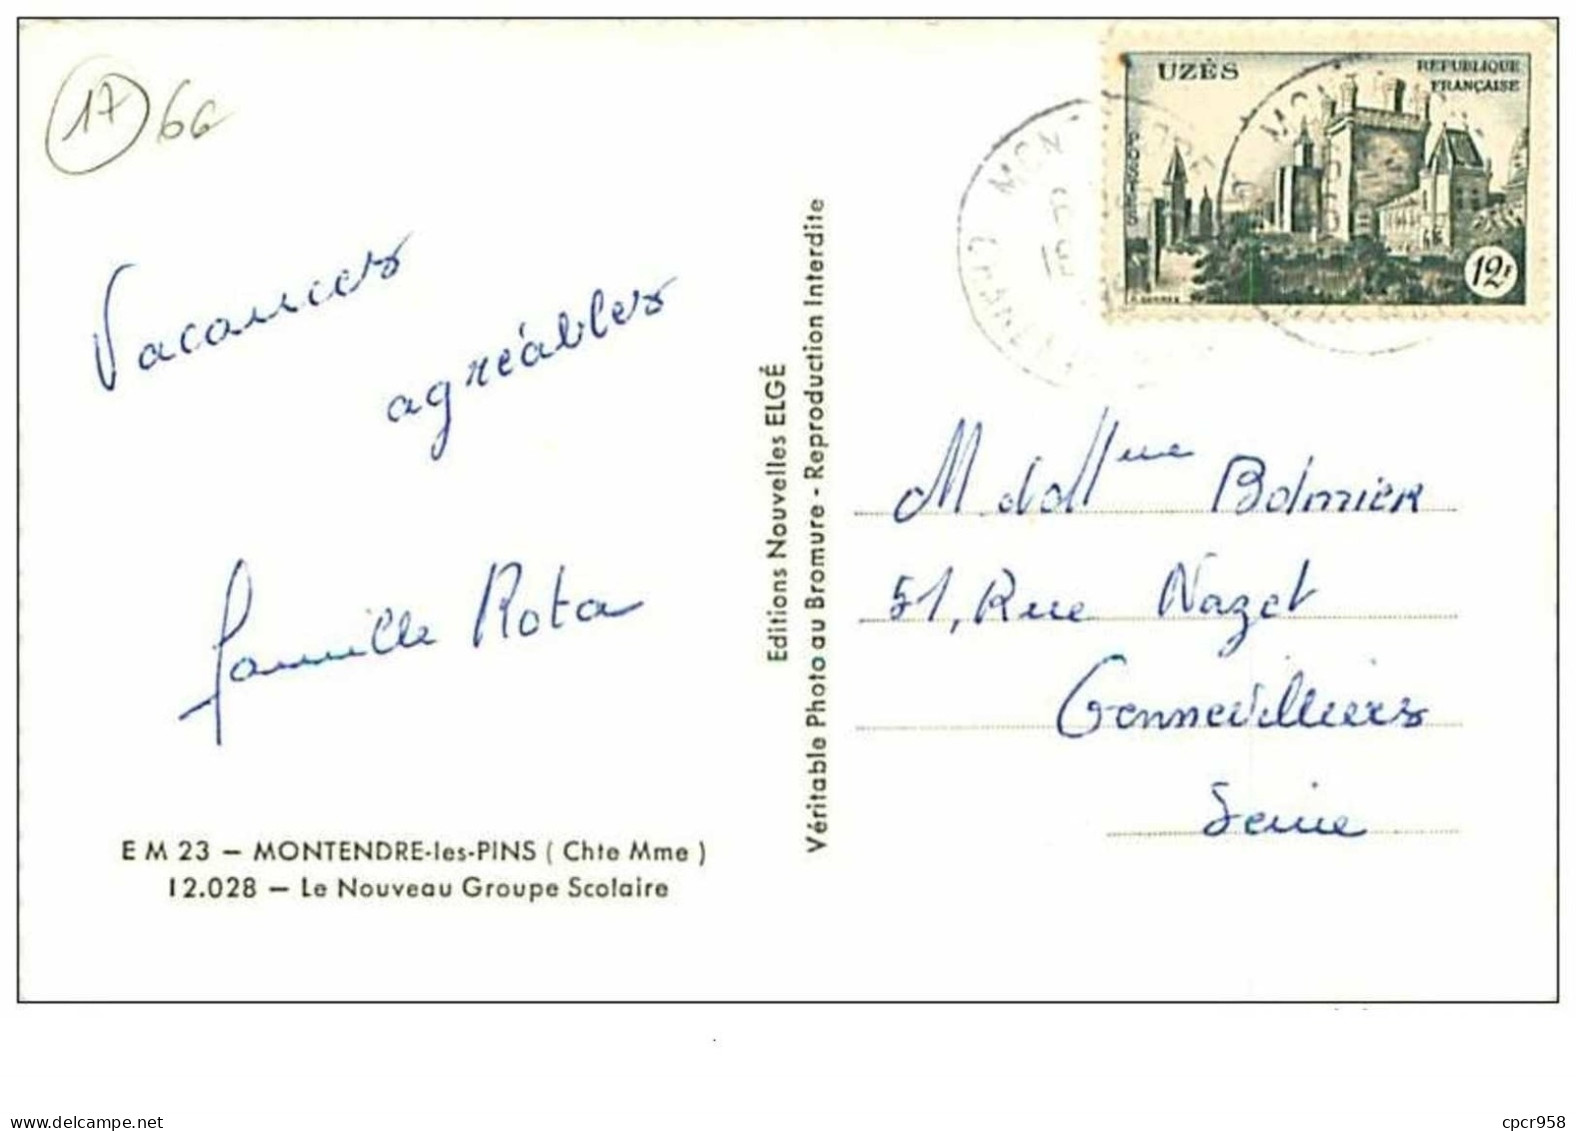 17 66
UZÈS
RÉPUBLIQUE
FRANÇAISE
POSTES
12F
Vacances
agréables
famille Rota
E M 23 – MONTENDRE-les-PINS ( Chte Mme )
12.028 – Le Nouveau Groupe Scolaire
Editions Nouvelles ELGÉ
Véritable Photo au Bromure - Reproduction Interdite
Bolmier
51, Rue Nazet
Gennevilliers
Seine
www.delcampe.net
cpcr958